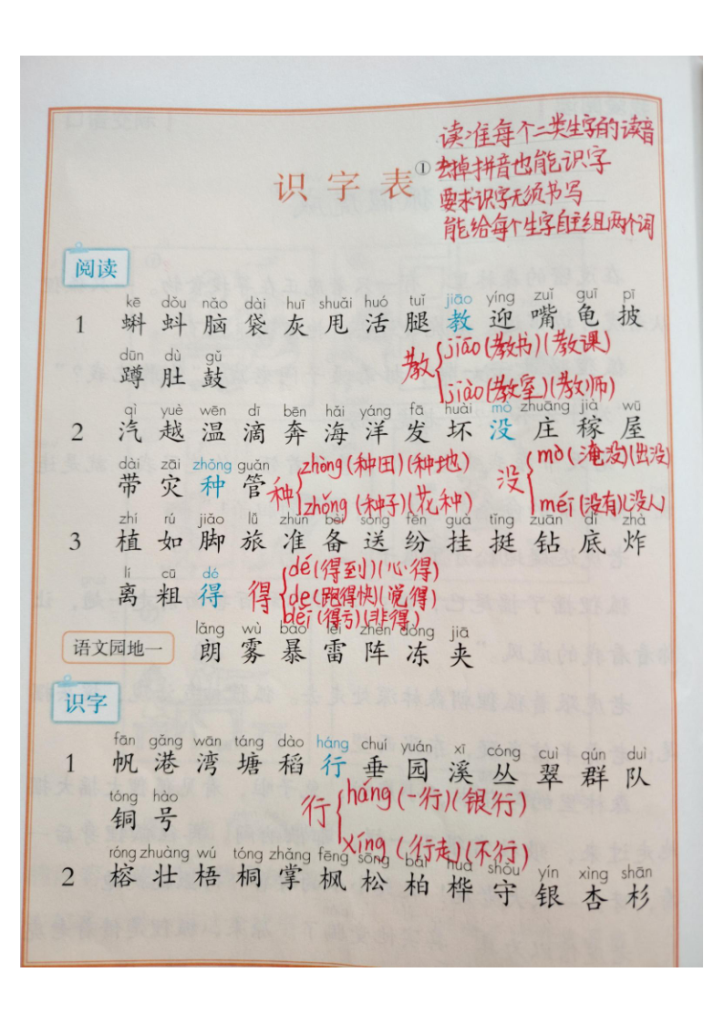 读准每个二类生字的读音
去掉拼音也能识字
要求识字无须书写
能给每个生字自主组两个词
识字表①
阅读
kē dǒu nǎo dài huī shuǎi huó tuǐ jiāo yíng zuǐ guī pī
1 蝌蚪脑袋灰甩活腿教迎嘴龟披
dūn dù gǔ
蹲肚鼓
教 jiāo(教书)(教课)
jiào(教室)(教师)
qì yuè wēn dī bēn hǎi yáng fā huài mò zhuāng jià wū
2 汽越温滴奔海洋发坏没庄稼屋
dài zāi zhǒng guǎn
带灾种管
种 zhòng(种田)(种地)
zhǒng(种子)(花种)
没 mò(淹没)(出没)
méi(没有)(没人)
zhí rú jiǎo lǚ zhǔn bèi sòng fēn guà tǐng zuān dǐ zhà
3 植如脚旅准备送纷挂挺钻底炸
lí cū dé
离粗得
得 dé(得到)(心得)
de(跑得快)(说得)
děi(得亏)(非得)
语文园地一
lǎng wù bào léi zhèn dòng jiā
朗雾暴雷阵冻夹
识字
fān gǎng wān táng dào háng chuí yuán xī cóng cuì qún duì
1 帆港湾塘稻行垂园溪丛翠群队
tóng hào
铜号
行 háng(一行)(银行)
xíng(行走)(不行)
róng zhuàng wú tóng zhǎng fēng sōng bǎi huà shǒu yín xìng shān
2 榕壮梧桐掌枫松柏桦守银杏杉